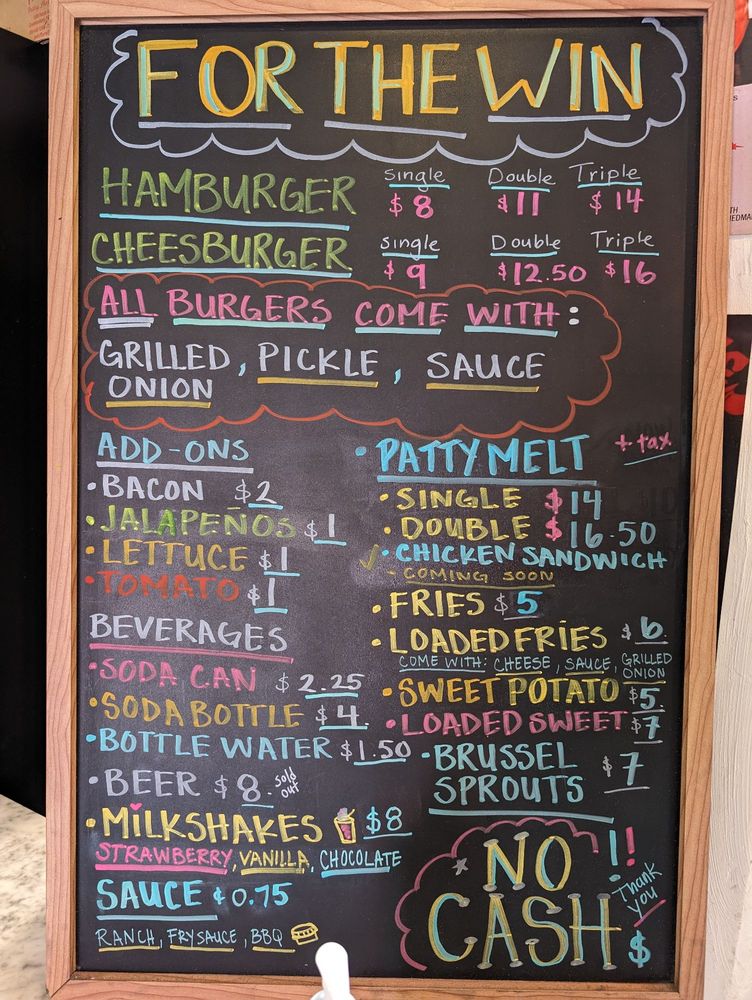 FOR THE WIN
HAMBURGER Single $8 Double $11 Triple $14
CHEESBURGER Single $9 Double $12.50 Triple $16
ALL BURGERS COME WITH:
GRILLED ONION, PICKLE, SAUCE
ADD-ONS
• BACON $2
• JALAPEÑOS $1
• LETTUCE $1
• TOMATO $1
BEVERAGES
• SODA CAN $2.25
• SODA BOTTLE $4.
• BOTTLE WATER $1.50
• BEER $8. sold out
• MILKSHAKES $8
STRAWBERRY, VANILLA, CHOCOLATE
SAUCE $0.75
RANCH, FRYSAUCE, BBQ
• PATTY MELT + tax
• SINGLE $14
• DOUBLE $16.50
• CHICKEN SANDWICH
- COMING SOON
• FRIES $5
• LOADED FRIES $6
COME WITH: CHEESE, SAUCE, GRILLED ONION
• SWEET POTATO $5
• LOADED SWEET $7
• BRUSSEL SPROUTS $7
NO CASH !!
Thank you
$